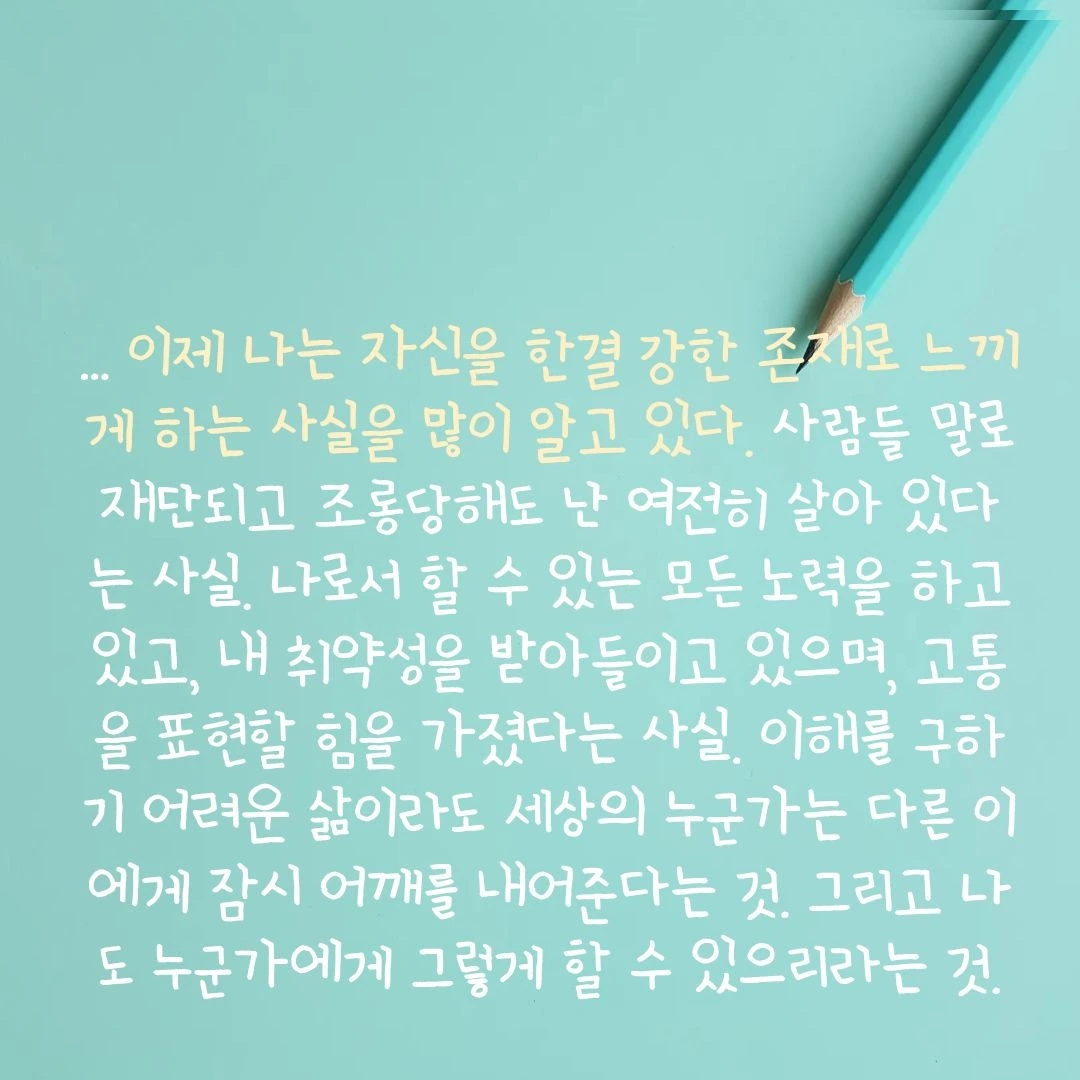 ... 이제 나는 자신을 한결 강한 존재로 느끼
게 하는 사실을 많이 알고 있다. 사람들 말로
재단되고 조롱당해도 난 여전히 살아 있다
는 사실. 나로서 할 수 있는 모든 노력을 하고
있고, 내 취약성을 받아들이고 있으며, 고통
을 표현할 힘을 가졌다는 사실. 이해를 구하
기 어려운 삶이라도 세상의 누군가는 다른 이
에게 잠시 어깨를 내어준다는 것. 그리고 나
도 누군가에게 그렇게 할 수 있으리라는 것.